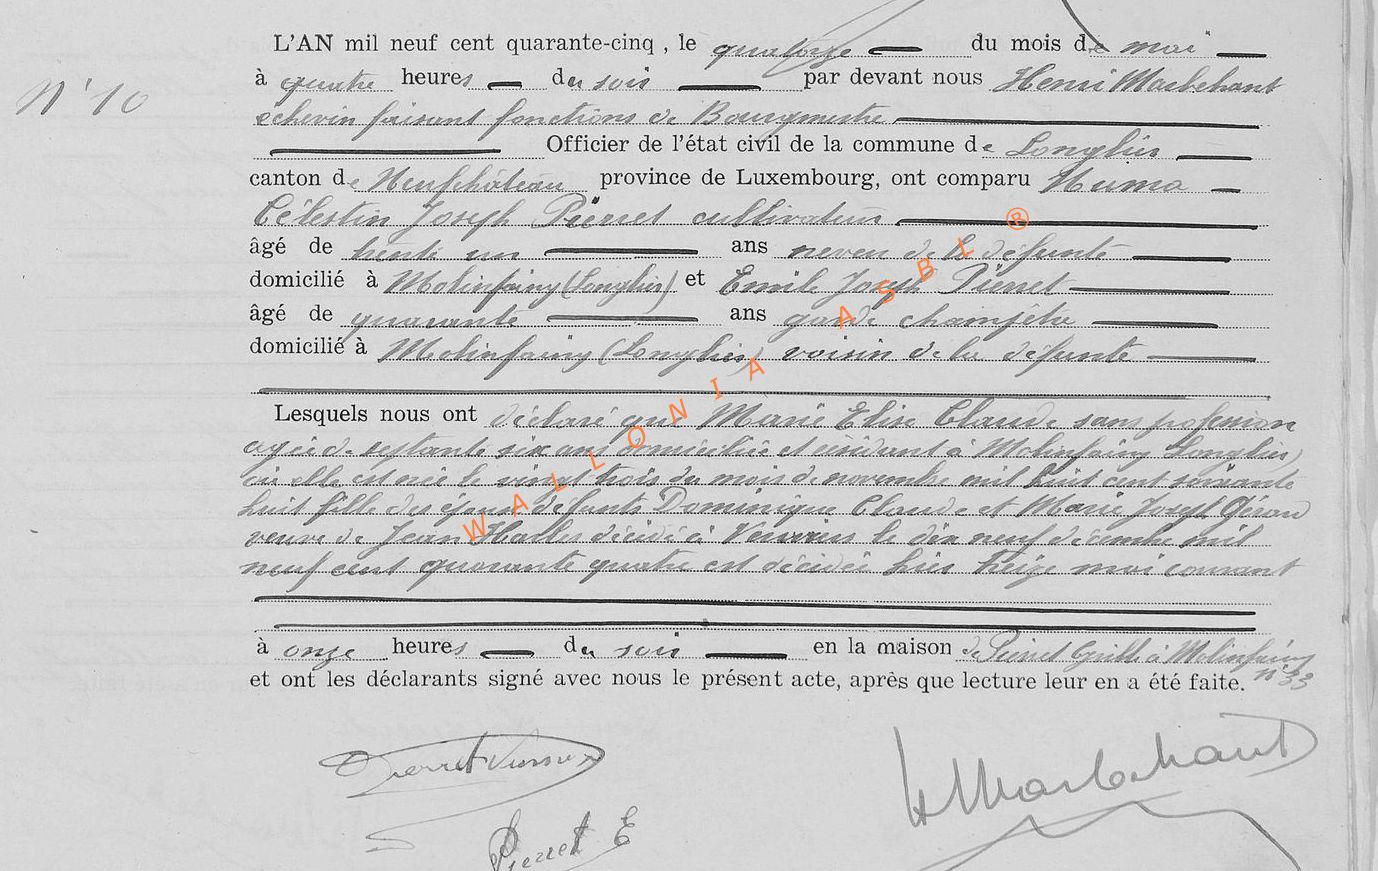 N° 10
L'AN mil neuf cent quarante-cinq, le quatorze du mois de mai
à quatre heures du soir par devant nous Henri Marbehant
échevin faisant fonctions de Bourgmestre
Officier de l'état civil de la commune de Longlier
canton de Neufchâteau province de Luxembourg, ont comparu Numa
Célestin Joseph Pierret cultivateur
âgé de trente un ans neveu de la défunte
domicilié à Molinfaing (Longlier) et Emile Joseph Pierret
âgé de quarante ans garde champêtre
domicilié à Molinfaing (Longlier) voisin de la défunte
Lesquels nous ont déclaré que Marie Elise Claude sans profession
agée de septante six ans domiciliée et résidant à Molinfaing Longlier)
où elle est née le vingt trois du mois de novembre mil huit cent soixante
huit fille des époux défunts Dominique Claude et Marie Joseph Gérau
veuve de Jean décédé à le dix neuf décembre mil
neuf cent quarante quatre est décédée hier treize mai courant
à onze heures du soir en la maison de Pierret à Molinfaing
n° 33
et ont les déclarants signé avec nous le présent acte, après que lecture leur en a été faite.
Pierret
H Marbehant
Pierret E
WALLONIA ASBL ®